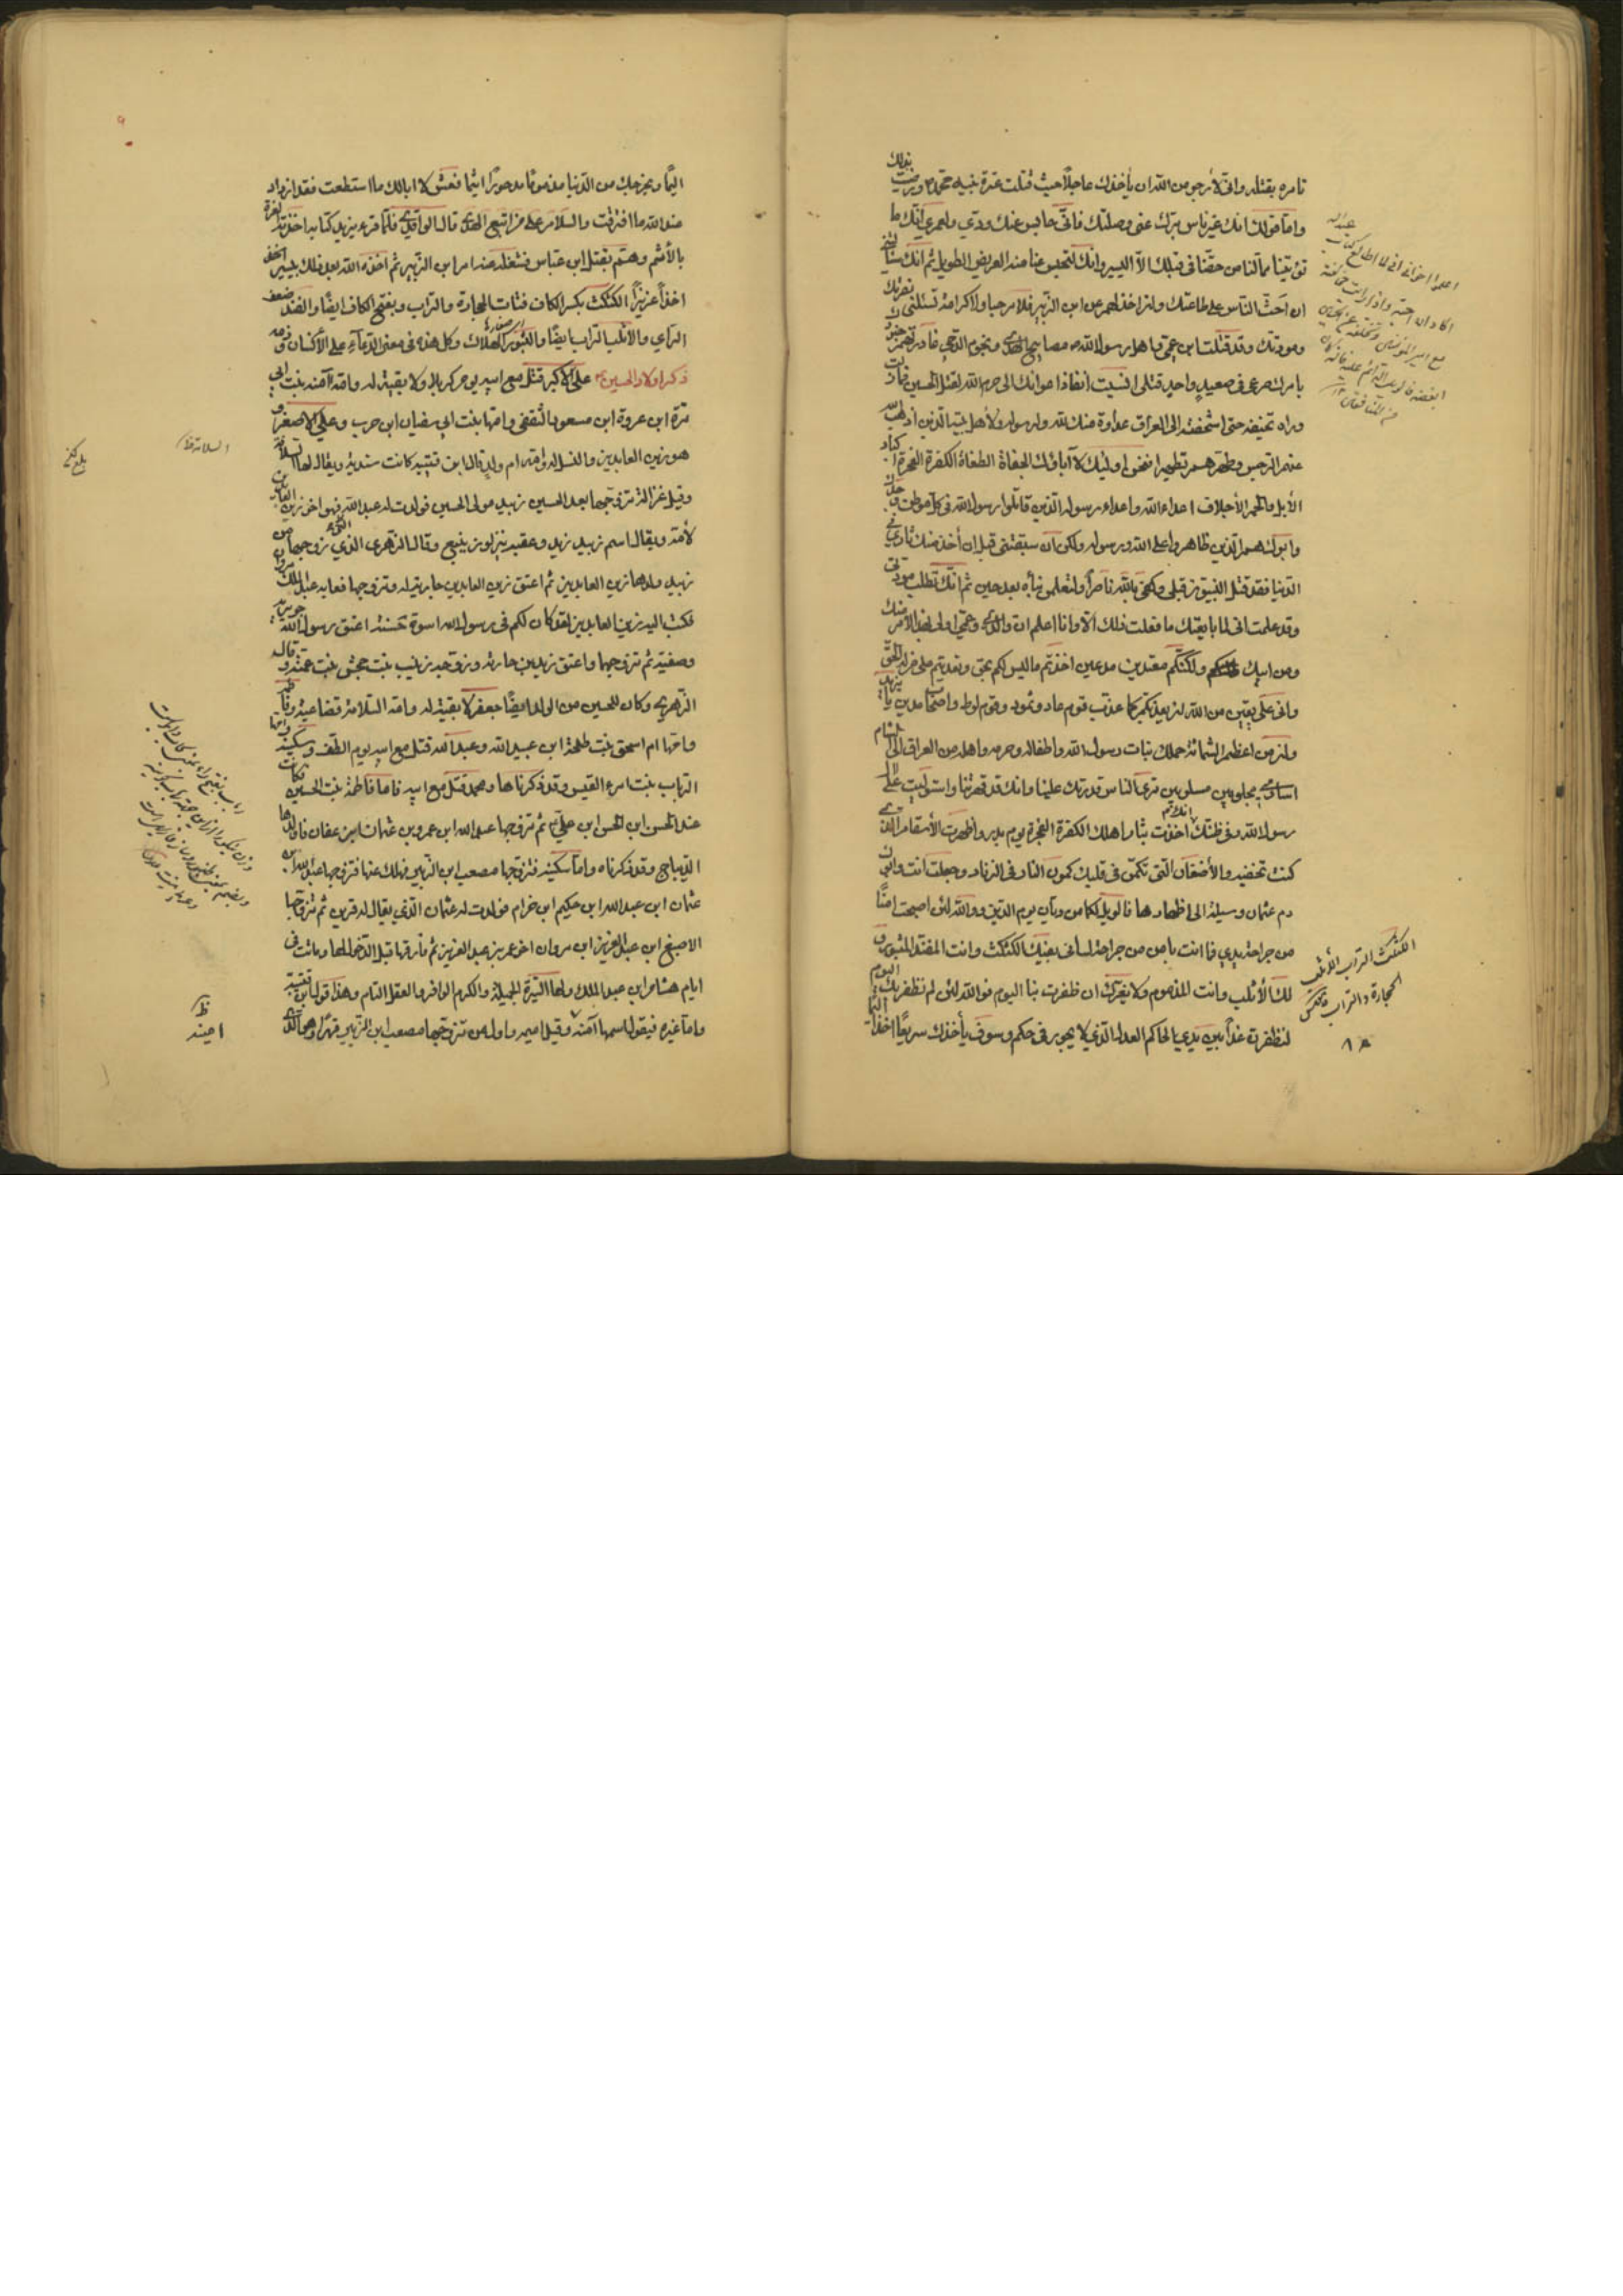 تامره بقتله وانى لأرجو من الله ان يأخذك عاجلاً حيث قتلت عترة نبيه محمد ص ورضيت بذلك
واما قولك انك غير ناس برك عنى وصلتك فانى حابس عنك ودى ولعمرى انك ما
تؤتينا مما لنا من حقنا فى قبلك الا اليسير وانك لتحبس عنا منه العريض الطويل ثم انك سألتنى
ان احث الناس على طاعتك وان اخذلهم عن ابن الزبير فلا مرحبا ولا كرامة تسئلنى نصرتك
ومودتك وقد قتلت ابن عمى واهل رسول الله ص مصابيح الهدى ونجوم الدجى غادرتهم جنود
بامرك صرعى فى صعيد واحد قتلى انسيت انفاذ اعوانك الى حرم الله لقتل الحسين فما زلت
وراه تخيفه حتى اشخصته الى العراق عداوة منك لله ولرسوله ولأهل بيته الذين اذهب الله
عنهم الرجس وطهرهم تطهيرا فنحن اولئك لا آبائك الجفاة الطغاة الكفرة الفجرة اكباد
الأبل والحمر الأجلاف اعداء الله واعداء رسوله الذين قاتلوا رسول الله فى كل موطن وجدك
وابوك هم الذين ظاهروا على الله ورسوله ولكن ان سبقتنى قبل ان أخذ منك ثارى فى
الدنيا فقد قتل النبيون قبلى وكفى بالله ناصراً ولتعلمن نبأه بعد حين ثم انك تطلب مودتى
وقد علمت انى لما بايعتك ما فعلت ذلك الا وانا اعلم ان ولد ابى وعمى اولى بهذا الامر منك
ومن ابيك ولكنكم معتدين مدعين اخذتم ما ليس لكم بحق وتعديتم على من له الحق
وانى على يقين من الله ان يعذبكم كما عذب قوم عاد وثمود وقوم لوط واصحاب مدين يا يزيد
وان من اعظم الشماتة حملك بنات رسول الله واطفاله وحرمه واهله من العراق الى الشام
اسارى مجلوبين مسلوبين ترى الناس قدرتك علينا وانك قد قهرتنا واستوليت على ال
رسول الله وفى ظنك انك اخذت بثار اهلك الكفرة الفجرة يوم بدر واظهرت الانتقام الذى
كنت تخفيه والأضغان التى تكمن فى قلبك كمون النار فى الزناد وجعلت انت وابوك
دم عثمان وسيلة الى اظهارها فالويل لكما من ديان يوم الدين ووالله لئن اصبحت امنًا
من جراحة يدى فما انت بامن من جراحة لسانى بفيك الكثكث وانت المفند المثبور و
لك الأثلب وانت المذموم ولا يغرنك ان ظفرت بنا اليوم فوالله لئن لم نظفر بك اليوم
لنظفرن غداً بين يدى الحاكم العدل الذى لا يجور فى حكمه وسوف يأخذك سريعًا اخذا اليما
الكثكث التراب الأثلب
الحجارة والتراب
اليمًا ويخرجك من الدنيا مذمومًا مدحورًا اثيما فعش لا ابالك ما استطعت فقد ازداد
عند الله ما اقترفت والسلام على من اتبع الهدى قال الواقدى فلما قرء يزيد كتابه اخذته العزة
بالأثم وهم بقتل ابن عباس فشغله عنه امر ابن الزبير ثم اخذه الله بعد ذلك بيسير اخذا
اخذاً عزيزاً الكثكث بكسر الكاف فتات الحجارة والتراب وبفتح الكاف ايضًا والفند ضعف
الرأى والأثلب التراب ايضًا والثبور الهلاك وكل هذه فى معنى الدعاء على الأنسان وذمه
ذكر اولاد الحسين ع على الأكبر قتل مع ابيه يوم كربلا ولا بقية له وامه آمنه بنت ابى
مرة ابن عروة ابن مسعود الثقفى وامها بنت ابى سفيان ابن حرب وعلى الاصغر و
هو زين العابدين والنسل له وامه ام ولد قال ابن قتيبه كانت سندية ويقال لها السلافة
وقيل غزالة تزوجها بعد الحسين زبيد مولى الحسين فولدت له عبد الله فهو اخو زين العابدين
لأمه ويقال اسم زبيد زيد وعقبه ينزلون ينبع وقال الزهرى الذى زوجها من
زبيد ولدها زين العابدين ثم اعتق زين العابدين جارية له وتزوجها فعابه عبد الملك
فكتب اليه زين العابدين لقد كان لكم فى رسول الله اسوة حسنة اعتق رسول الله جويرية
وصفية ثم تزوجها واعتق زيد بن حارثة وزوجه زينب بنت جحش بنت عمته وقاله
الزهرى وكان للحسين من الولد ايضًا جعفر لا بقية له وامه السلامة قضاعية وفاطمة
وامها ام اسحق بنت طلحة ابن عبيد الله وعبد الله قتل مع ابيه يوم الطف وسكينة وامها
الرباب بنت امرء القيس وقد ذكرناها ومحمد قتل مع ابيه فاما فاطمة بنت الحسين فكانت
عند الحسن ابن الحسن ابن على ع ثم تزوجها عبد الله ابن عمرو بن عثمان ابن عفان فاولدها
الديباج وقد ذكرناه واما سكينة فتزوجها مصعب ابن الزبير فهلك عنها فتزوجها عبد الله ابن
عثمان ابن عبد الله ابن حكيم ابن حزام فولدت له عثمان الذى يقال له قرين ثم تزوجها
الاصبغ ابن عبد العزيز ابن مروان اخو عمر بن عبد العزيز ثم فارقها قبل الدخول لها وماتت فى
ايام هشام ابن عبد الملك ولها السيرة الجميلة والكرم الوافر والعقل التام وهذا قول ابن قتيبة
واما غيره فيقول اسمها آمنه وقيل اميمه واول من تزوجها مصعب ابن الزبير قهرًا وهو الذى
السلامة ظ